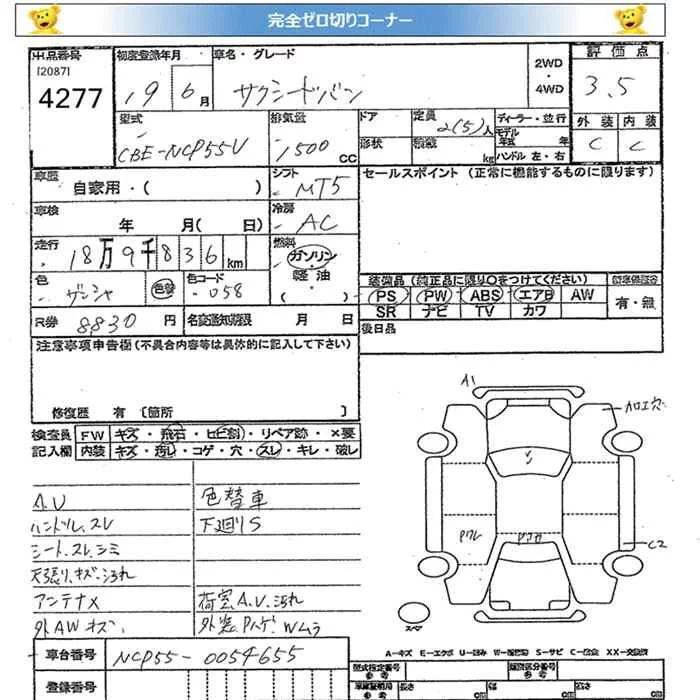 完全ゼロ切りコーナー
出品番号
[2087]
4277
初度登録年月
19 6月
車名・グレード
サクシードバン
2WD
・
4WD
評価点
3.5
型式
CBE-NCP55V
排気量
1500 CC
ドア
形状
定員
2(5)人
積載
kg
ディーラー・並行
モデル
年式 年
ハンドル 左・右
外装 内装
C C
車歴
自家用・( )
シフト
MT5
セールスポイント (正常に機能するものに限ります)
車検
年 月( 日)
冷房
AC
走行
18万9千836km
燃料
ガソリン
軽油
( )
色
ガンシャ
色替
色コード
058
装備品 (純正品に限り○をつけてください)
PS PW ABS エアB AW
SR ナビ TV カワ
新車保証書
有・無
R券 8830 円
名変通知期限 月 日
後日品
注意事項申告欄(不具合内容等は具体的に記入して下さい)
修復歴 有 [箇所 ]
検査員
記入欄
FW キズ・飛石・ヒビ割・リペア跡・×要
内装 キズ・汚レ・コゲ・穴・スレ・キレ・破レ
A.U
色替車
ハンドル、スレ
下廻りS
シート、スレ、シミ
天張り、キズ、汚れ
アンテナX
荷室A.U.汚れ
外AWキズ
外装PハゲWムラ
A1
加工穴
Pワレ
C2
スペア
A-キズ E-エクボ U-凹み W-補修跡 S-サビ C-腐食 XX-交換済
車台番号
NCP55-0054655
登録番号
型式指定番号
参考
類別区分番号
参考
車庫証明用
参考
長さ
cm
幅
cm
高さ
cm